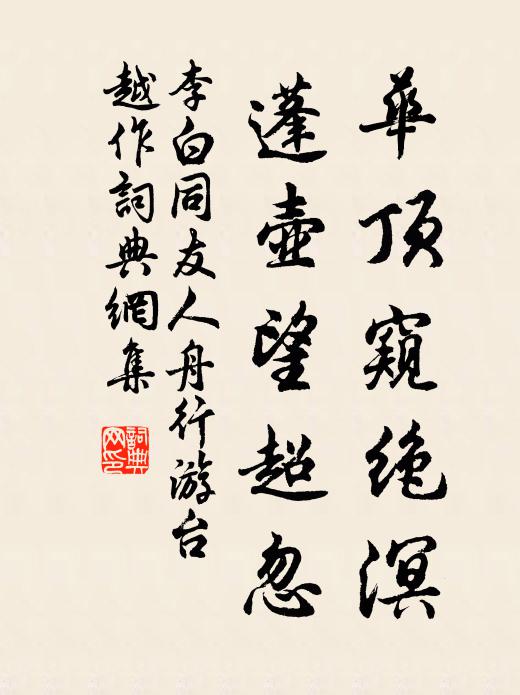 華頂窺绝溟
蓬壺望超忽
李白同友人舟行游台
越作詞典網集
詞典网印